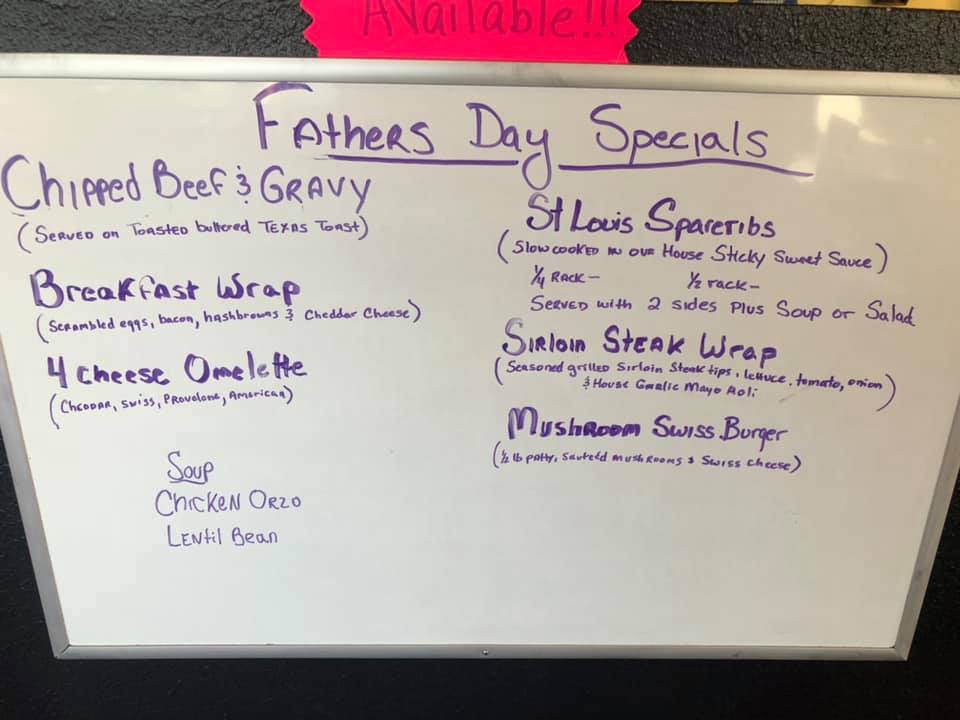 Available!!!
Fathers Day Specials
Chipped Beef & Gravy
(Served on Toasted buttered Texas Toast)
Breakfast Wrap
(Scrambled eggs, bacon, hashbrowns & Cheddar Cheese)
4 cheese Omelette
(Cheddar, Swiss, Provolone, American)
Soup
Chicken Orzo
Lentil Bean
St Louis Spareribs
(Slow cooked in our House Sticky Sweet Sauce)
1/4 Rack- 1/2 rack-
Served with 2 sides plus Soup or Salad
Sirloin Steak Wrap
(Seasoned grilled Sirloin Steak tips, lettuce, tomato, onion
& House Garlic Mayo Aoli)
Mushroom Swiss Burger
(1/2 lb patty, sauteld mushrooms & Swiss cheese)